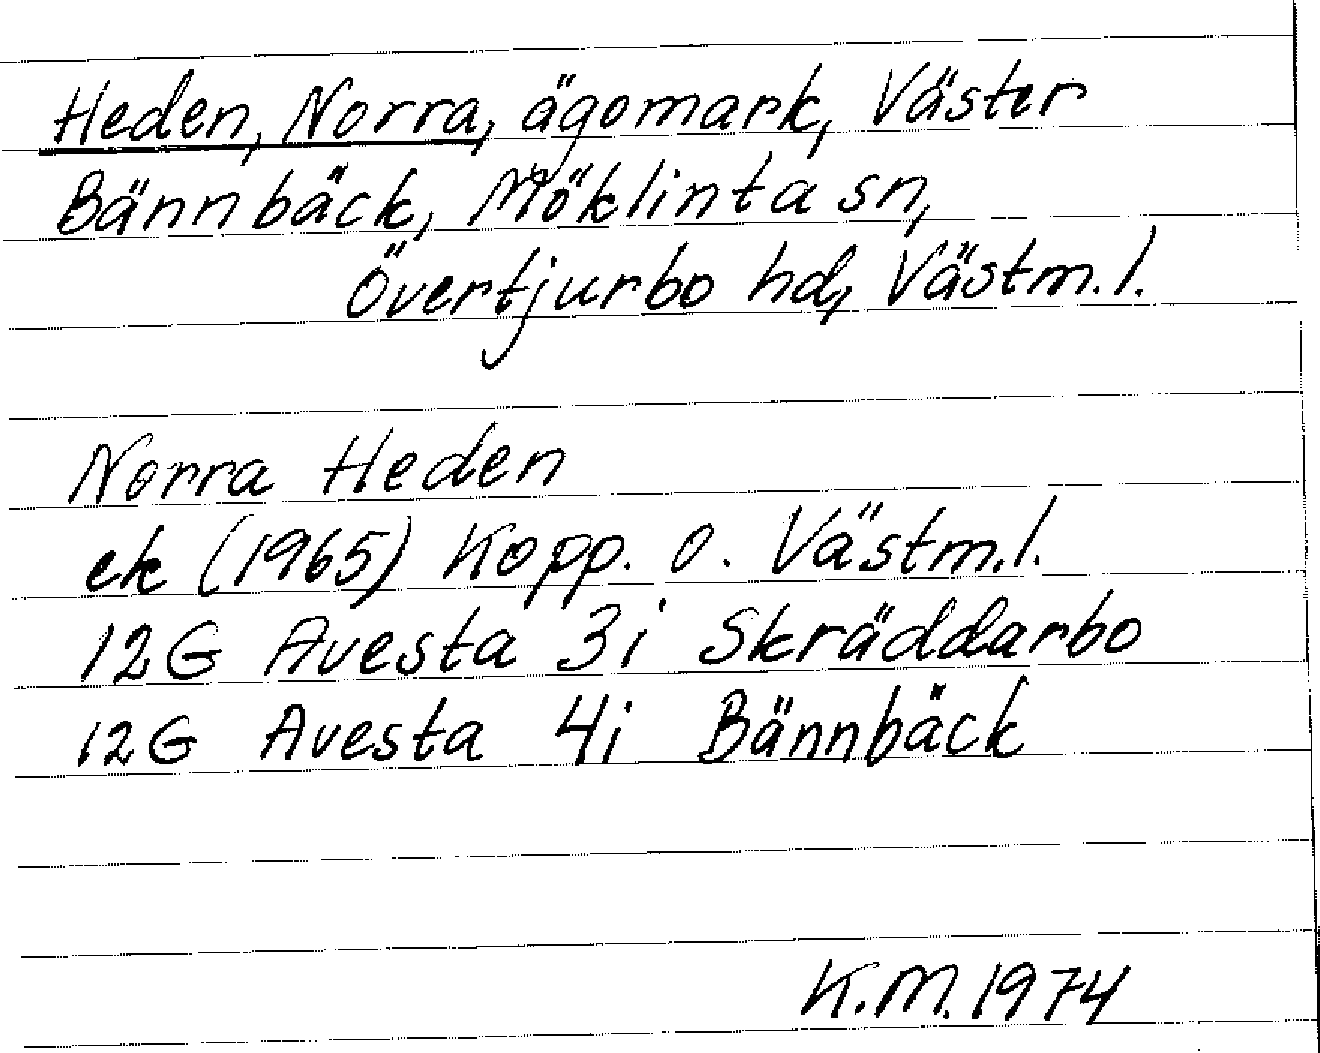 Heden, Norra, ägomark, Väster
Bännbäck, Möklinta sn,
Övertjurbo hd, Västm.l.
Norra Heden
ek (1965) Kopp. o. Västm.l.
12G Avesta 3i Skräddarbo
12G Avesta 4i Bännbäck
K.M. 1974